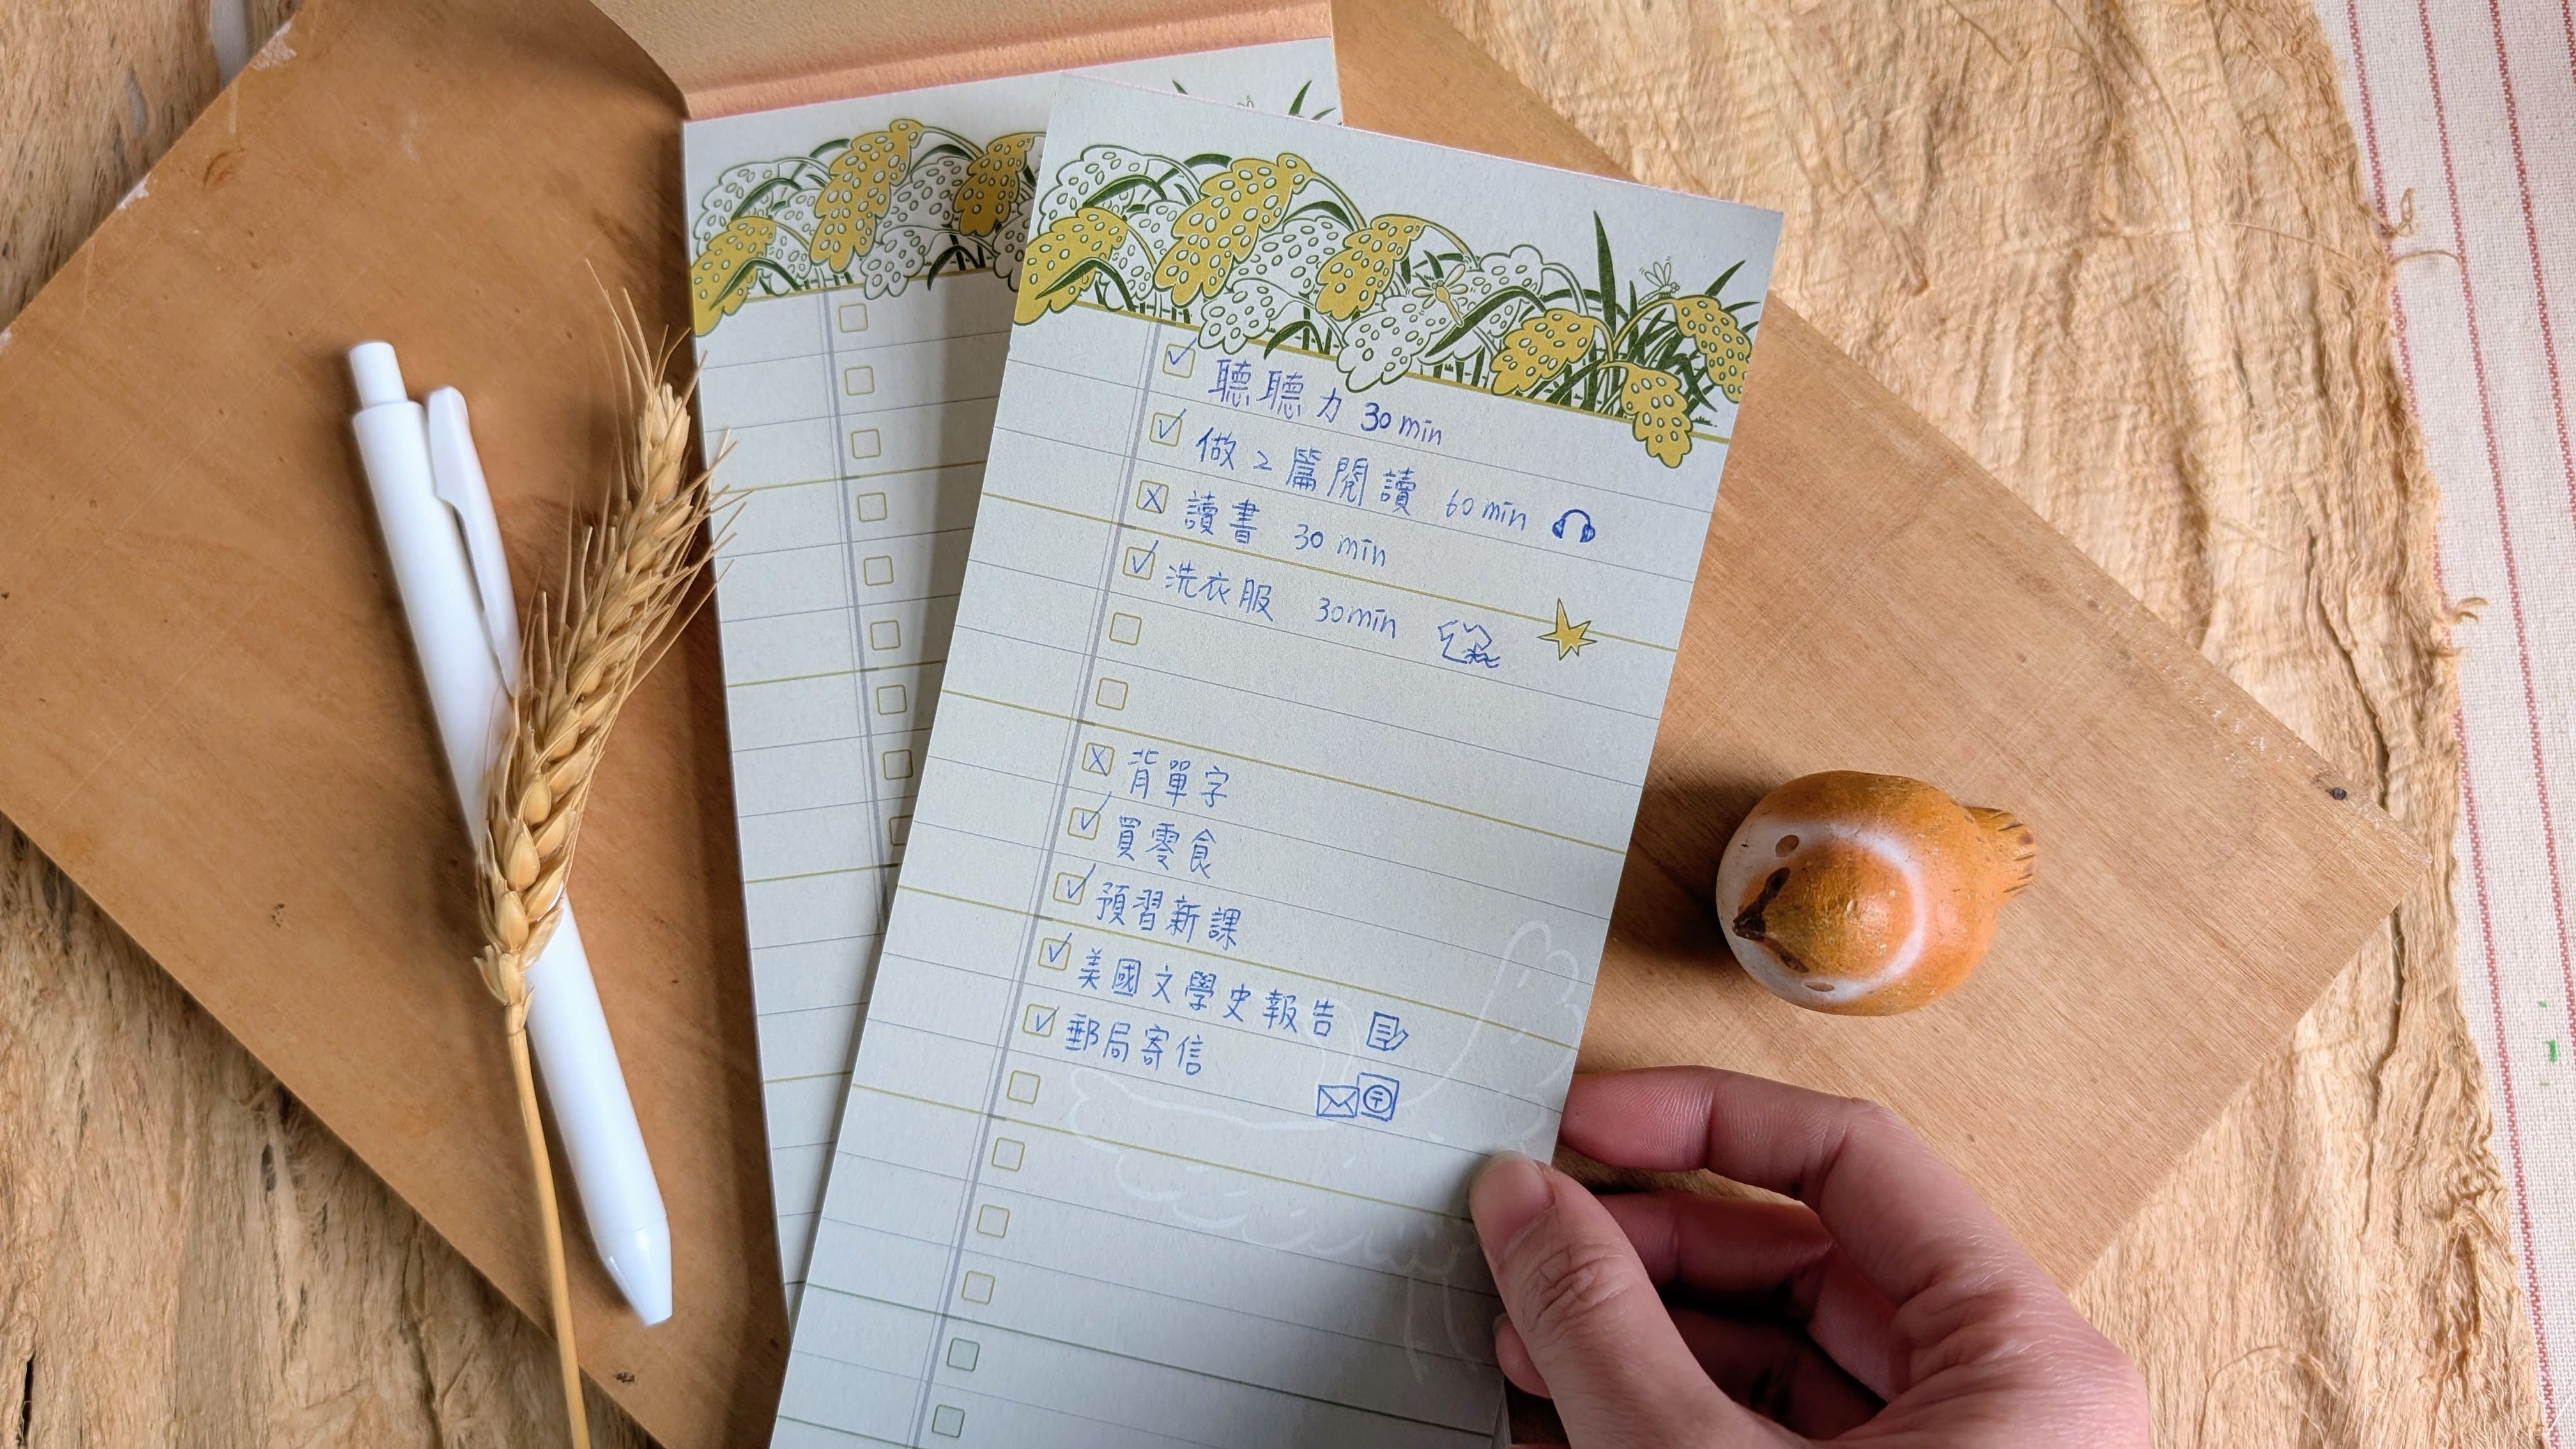 聽聽力 30 min
做2篇閱讀 60 min
讀書 30 min
洗衣服 30min
背單字
買零食
預習新課
美國文學史報告
郵局寄信
〒